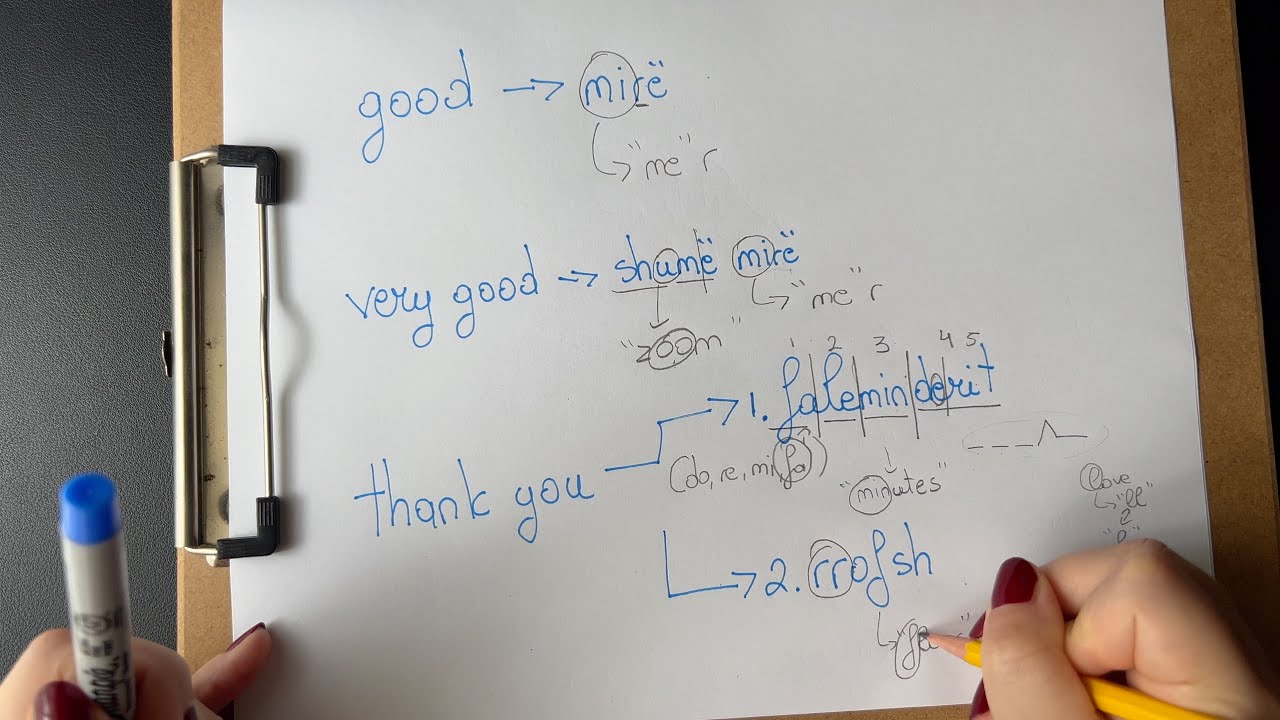 good → mirë
"me" r
very good → shumë mirë
"me" r
"zoom"
1 2 3 4 5
thank you → 1. faleminderit
(do, re, mi, fa)
"minutes"
love
"ll"
2
2. rrofsh
"fa